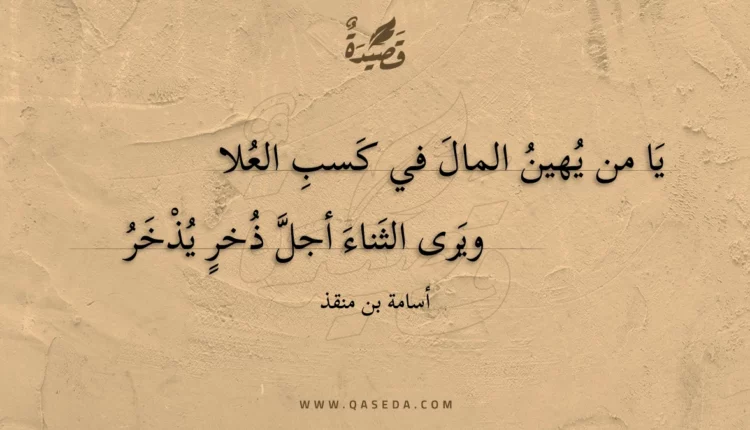 قَصِيدَةٌ
يَا من يُهينُ المالَ في كَسبِ العُلا
ويَرى الثَناءَ أجلَّ ذُخرٍ يُذْخَرُ
أسامة بن منقذ
WWW.QASEDA.COM